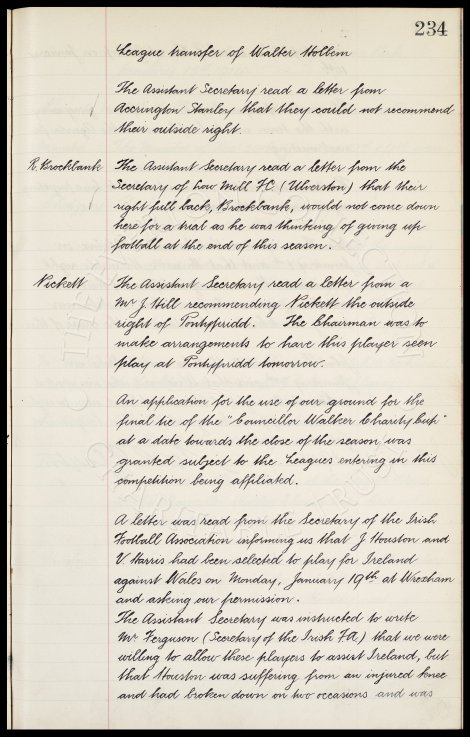 234
League transfer of Walter Holbem
The Assistant Secretary read a letter from
Accrington Stanley that they could not recommend
their outside right.
R. Brockbank The Assistant Secretary read a letter from the
Secretary of Low Mill F.C. (Ulverston) that their
right full back, Brockbank, would not come down
here for a trial as he was thinking of giving up
football at the end of this season.
Nickett The Assistant Secretary read a letter from a
Mr J. Hill recommending Nickett the outside
right of Pontypridd. The Chairman was to
make arrangements to have this player seen
play at Pontypridd tomorrow.
An application for the use of our ground for the
final tie of the "Councillor Walker Charity Cup"
at a date towards the close of the season was
granted subject to the Leagues entering in this
competition being affiliated.
A letter was read from the Secretary of the Irish
Football Association informing us that J Houston and
V. Harris had been selected to play for Ireland
against Wales on Monday, January 19th at Wrexham
and asking our permission.
The Assistant Secretary was instructed to write
Mr Ferguson (Secretary of the Irish F.A.) that we were
willing to allow these players to assist Ireland, but
that Houston was suffering from an injured knee
and had broken down on two occasions and was